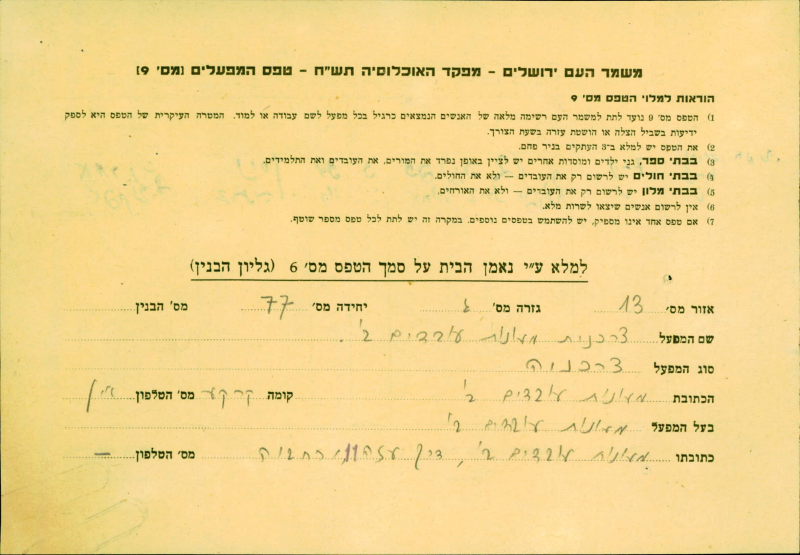 משמר העם ירושלים – מפקד האוכלוסיה תש"ח – טפס המפעלים (מס' 9)
הוראות למלוי הטפס מס' 9
1) הטפס מס' 9 נועד לתת למשמר העם רשימה מלאה של האנשים הנמצאים כרגיל בכל מפעל לשם עבודה או למוד. המטרה העיקרית של הטפס היא לספק
ידיעות בשביל הצלה או הושטת עזרה בשעת הצורך.
2) את הטפס יש למלא ב־3 העתקים בניר פחם.
3) בבתי ספר, גני ילדים ומוסדות אחרים יש לציין באופן נפרד את המורים, את העובדים ואת התלמידים.
4) בבתי חולים יש לרשום רק את העובדים — ולא את החולים.
5) בבתי מלון יש לרשום רק את העובדים — ולא את האורחים.
6) אין לרשום אנשים שיצאו לשרות מלא.
7) אם טפס אחד אינו מספיק, יש להשתמש בטפסים נוספים. במקרה זה יש לתת לכל טפס מספר שוטף.
למלא ע"י נאמן הבית על סמך הטפס מס' 6 (גליון הבנין)
אזור מס' 13 גזרה מס' יחידה מס' 77 מס' הבנין
שם המפעל צרכנית מעונות עובדים ב'.
סוג המפעל צרכניה
הכתובת מעונות עובדים ב' קומה קרקע מס' הטלפון אין
בעל המפעל מעונות עובדים ב'
כתובתו מעונות עובדים ב', דרך עזה 11, רחביה מס' הטלפון —